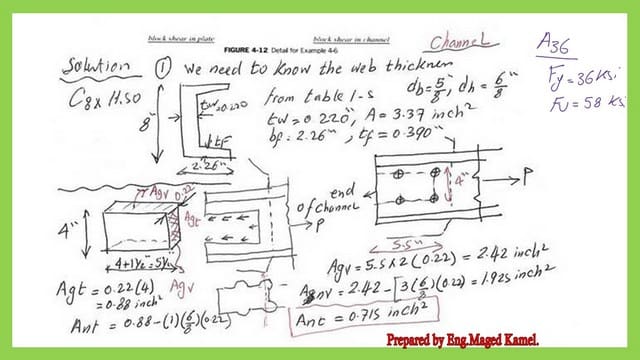 block shear in plate
block shear in channel
FIGURE 4-12 Detail for Example 4-6
Channel
A36
Fy=36 ksi
Fu=58 ksi
Solution ① we need to know the web thicknem
db=5/8", dh=6/8"
C8x11.50
8"
tw=0.220
tf
2.26"
from table 1-5
tw=0.220", A=3.37 inch²
bf=2.26", tf=0.390"
Agv 0.22
4"
Agt
4+1½"=5½
Agv
P
end
of channel
4"
P
5.5"
Agt=0.22(4)
=0.88 inch²
Ant=0.88-(1)(6/8)(0.22)
Agv=5.5x2(0.22)=2.42 inch²
Anv=2.42-[3(6/8)(0.22)=1.925 inch²
Ant=0.715 inch²
Prepared by Eng.Maged Kamel.